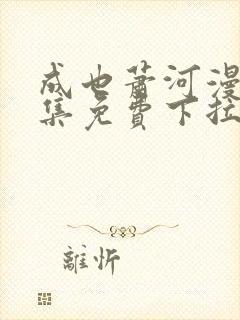 成也萧河漫
集免費下拉
離忻